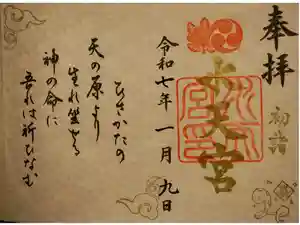 奉拝
初詣
水天宮
令和七年一月九日
ひさかたの
天の原より
生れ坐せる
神の命に
吾れは祈ひなむ